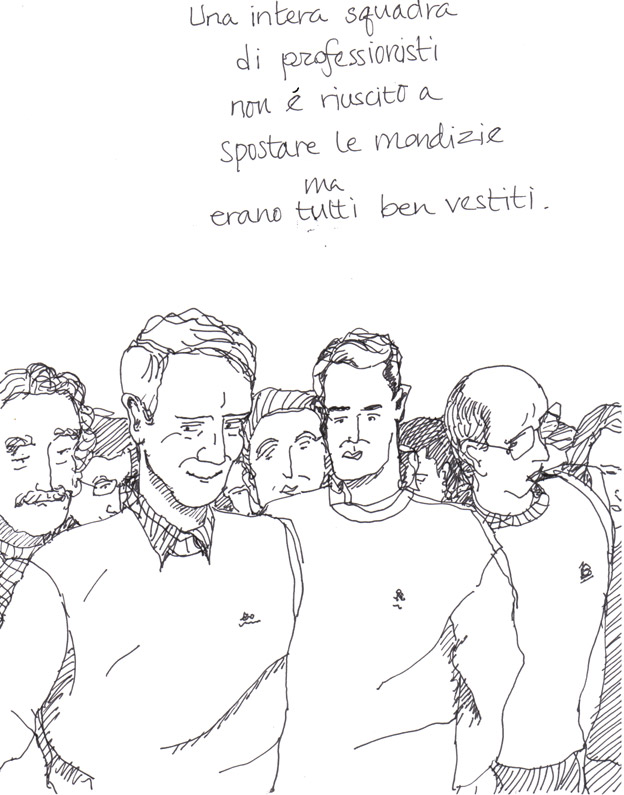 Una intera squadra
di professionisti
non é riuscito a
spostare le mondizie
ma
erano tutti ben vestiti.